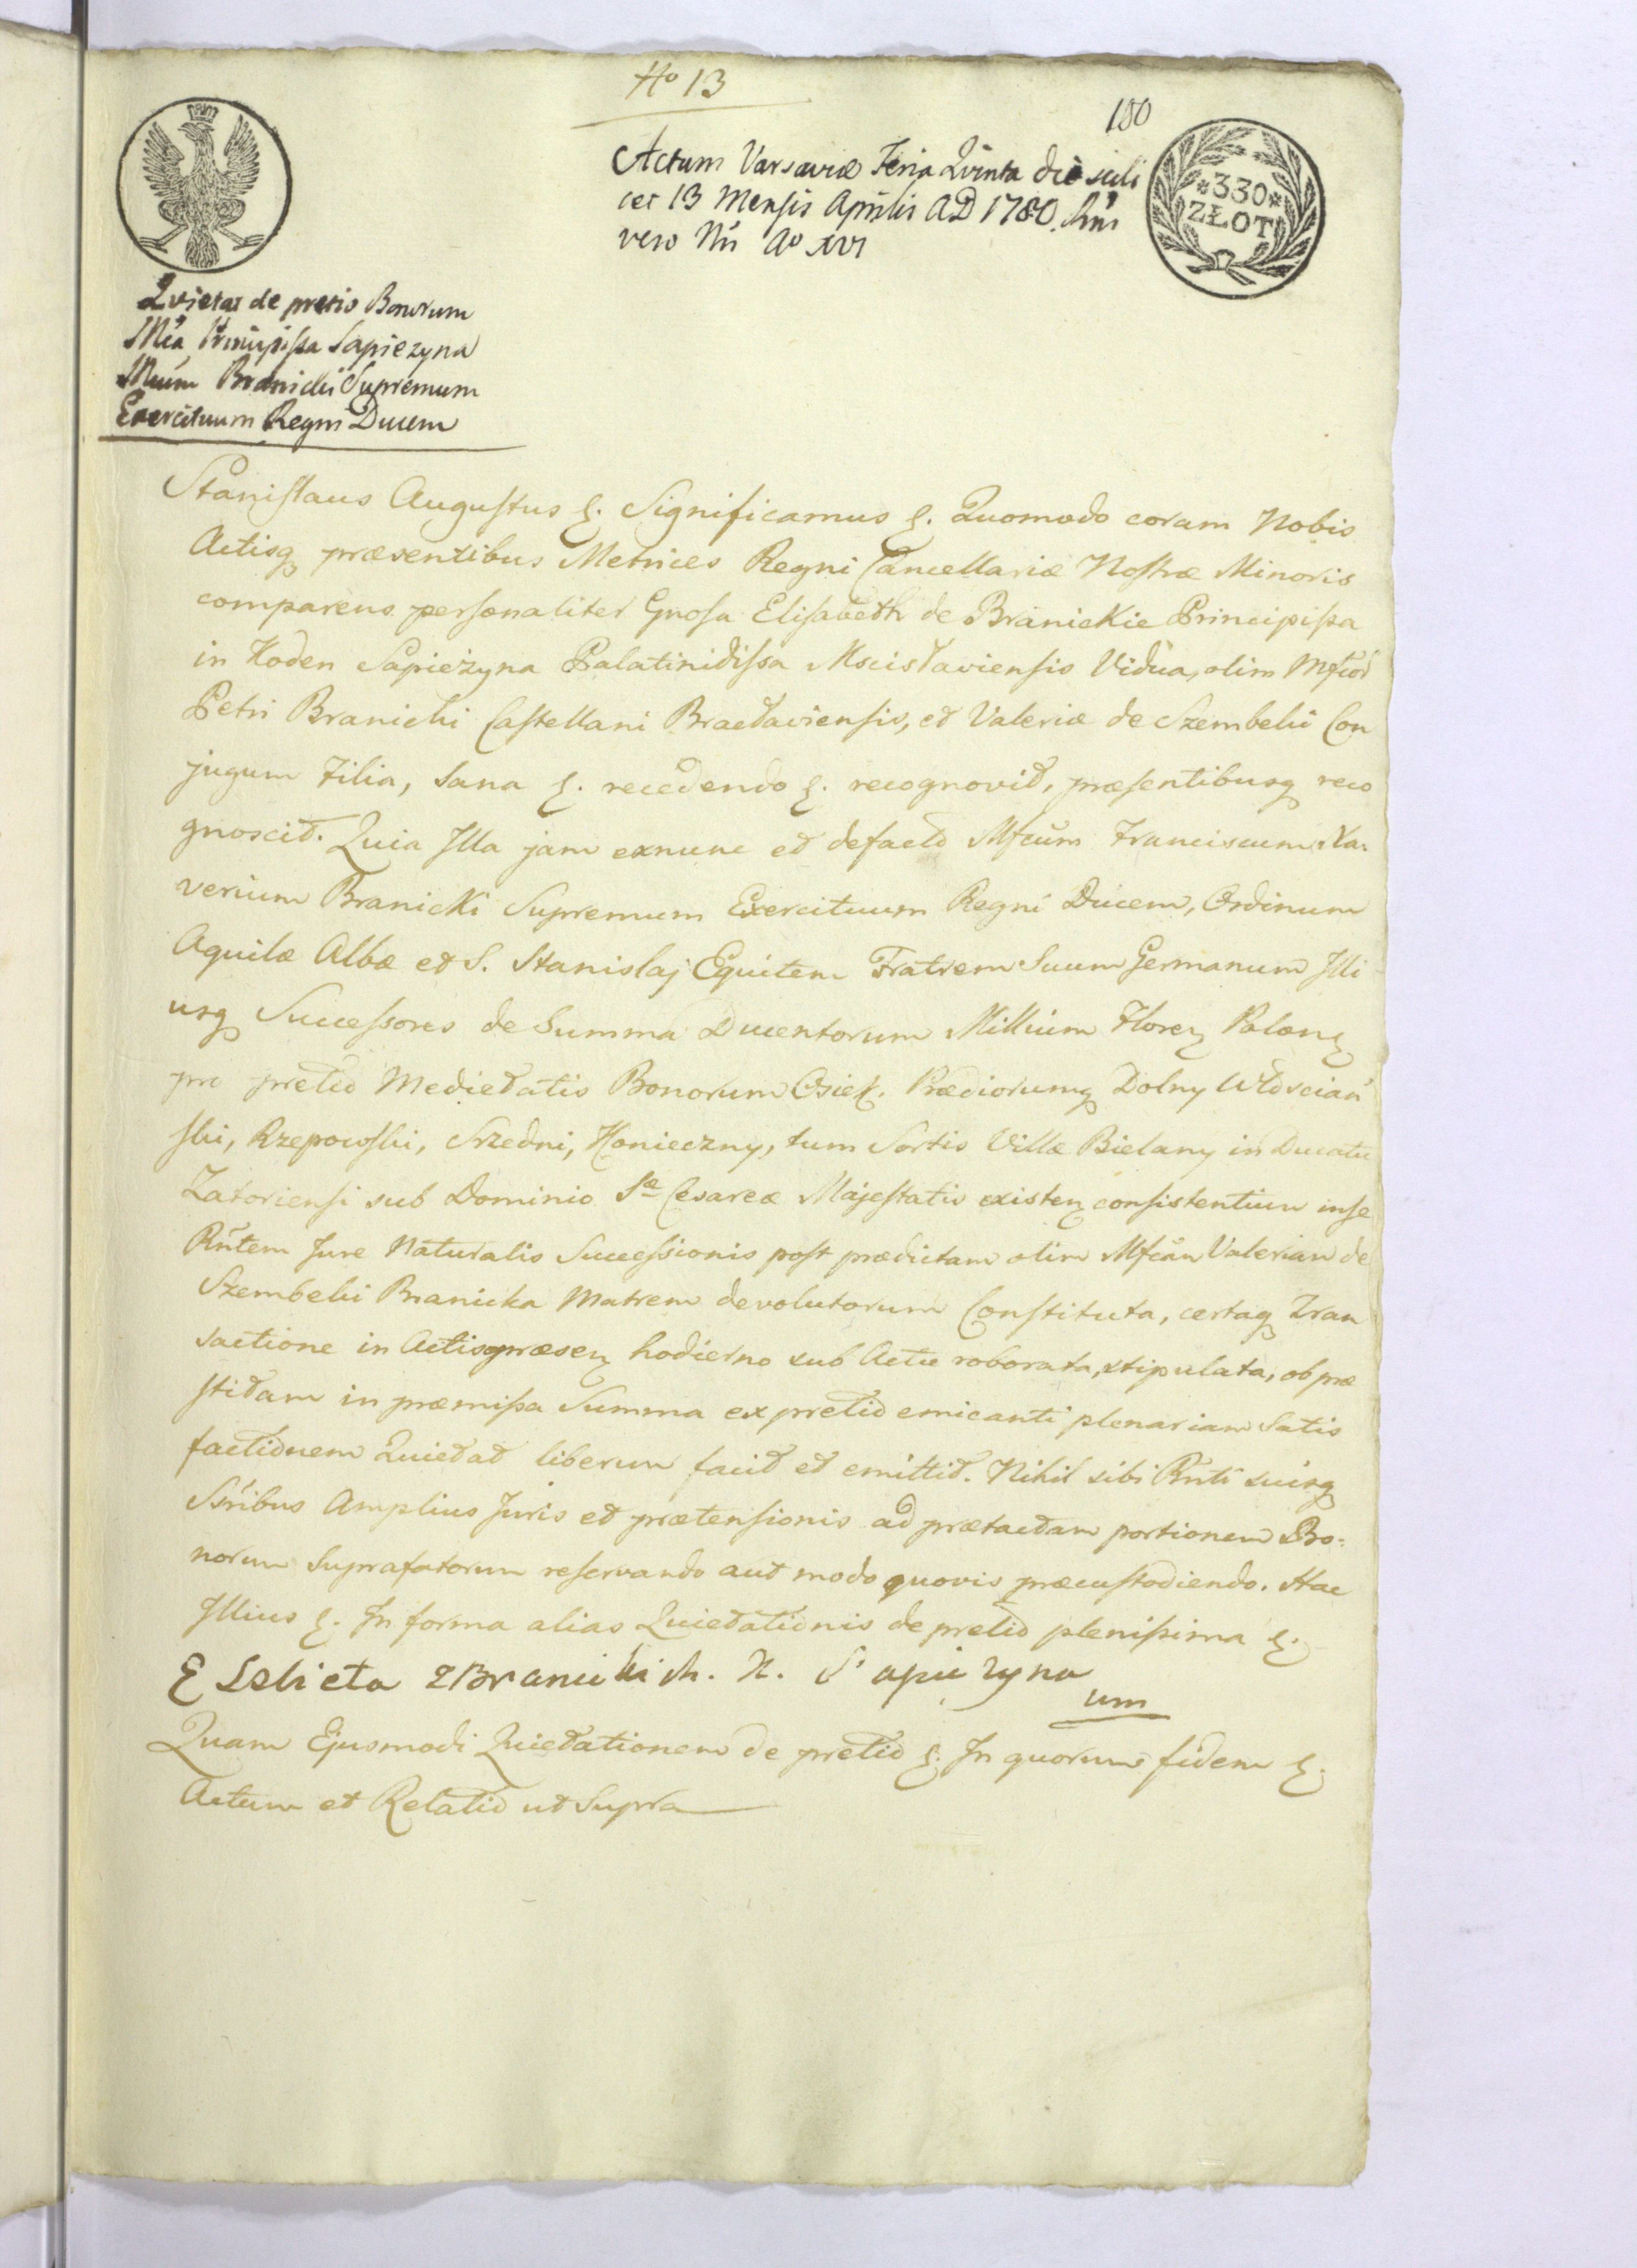 No 13
180
Actum Varsaviæ Feria Qvinta die scili
cet 13 Mensis Aprilis AD 1780.
vero Ao XVI
*330*
ZŁOT
Qvietat de pretio Bonorum
Principissa Sapiezyna
Branicki Supremum
Exercituum Regni Ducem
Stanislaus Augustus &. Significamus &. Quomodo coram Nobis
Actisq præsentibus Metrices Regni Cancellariæ Nostræ Minoris
comparens personaliter Gnosa Elisabeth de Branickie Principissa
in Koden Sapieżyna Palatinidissa Mscislaviensis Vidua, olim Mfcor
Petri Branicki Castellani Braclaviensis, et Valeriæ de Szembeki Con
jugum Filia, sana &. recedendo &. recognovit, præsentibusq reco
gnoscit. Quia Illa jam exnunc et defacto Mfcum Franciscum Xa-
verium Branicki Supremum Exercituum Regni Ducem, Ordinum
Aquilæ Albæ et S. Stanislaj Equitem Fratrem Suum Germanum Illi
usq Successores de Summa Ducentorum Millium Floren Polon
pro pretio Medietatis Bonorum Osiek. Prædiorumq Dolny Włoscian
ski, Rzepowski, Srzedni, Konieczny, tum Sortis Villæ Bielany in Ducatu
Zatoriensi sub Dominio Sæ Cesareæ Majestatis existen consistentium inse
Rntem Jure Naturalis Successionis post prædictam olim Mfcam Valeriam de
Szembeki Branicka Matrem devolutorum Constituta, certaq Tran
sactione in Actis præsen hodierno sub Actu roborata, stipulata, ob præ
stitam in præmissa Summa ex pretio emicanti plenariam Satis
factionem Quietat liberum facit et emittit. Nihil sibi Rnti suisq
Ssribus Amplius Juris et prætensionis ad prætactam portionem Bo=
norum Suprafatorum reservando aut modo quovis præcustodiendo. Hac
Illius &. In forma alias Quietationis de pretio plenissima &.
Elsbieta z Branickich. X. Sapiezyna
um
Quam Ejusmodi Quietationem de pretio &. In quorum fidem &.
Actum et Relatio ut Supra